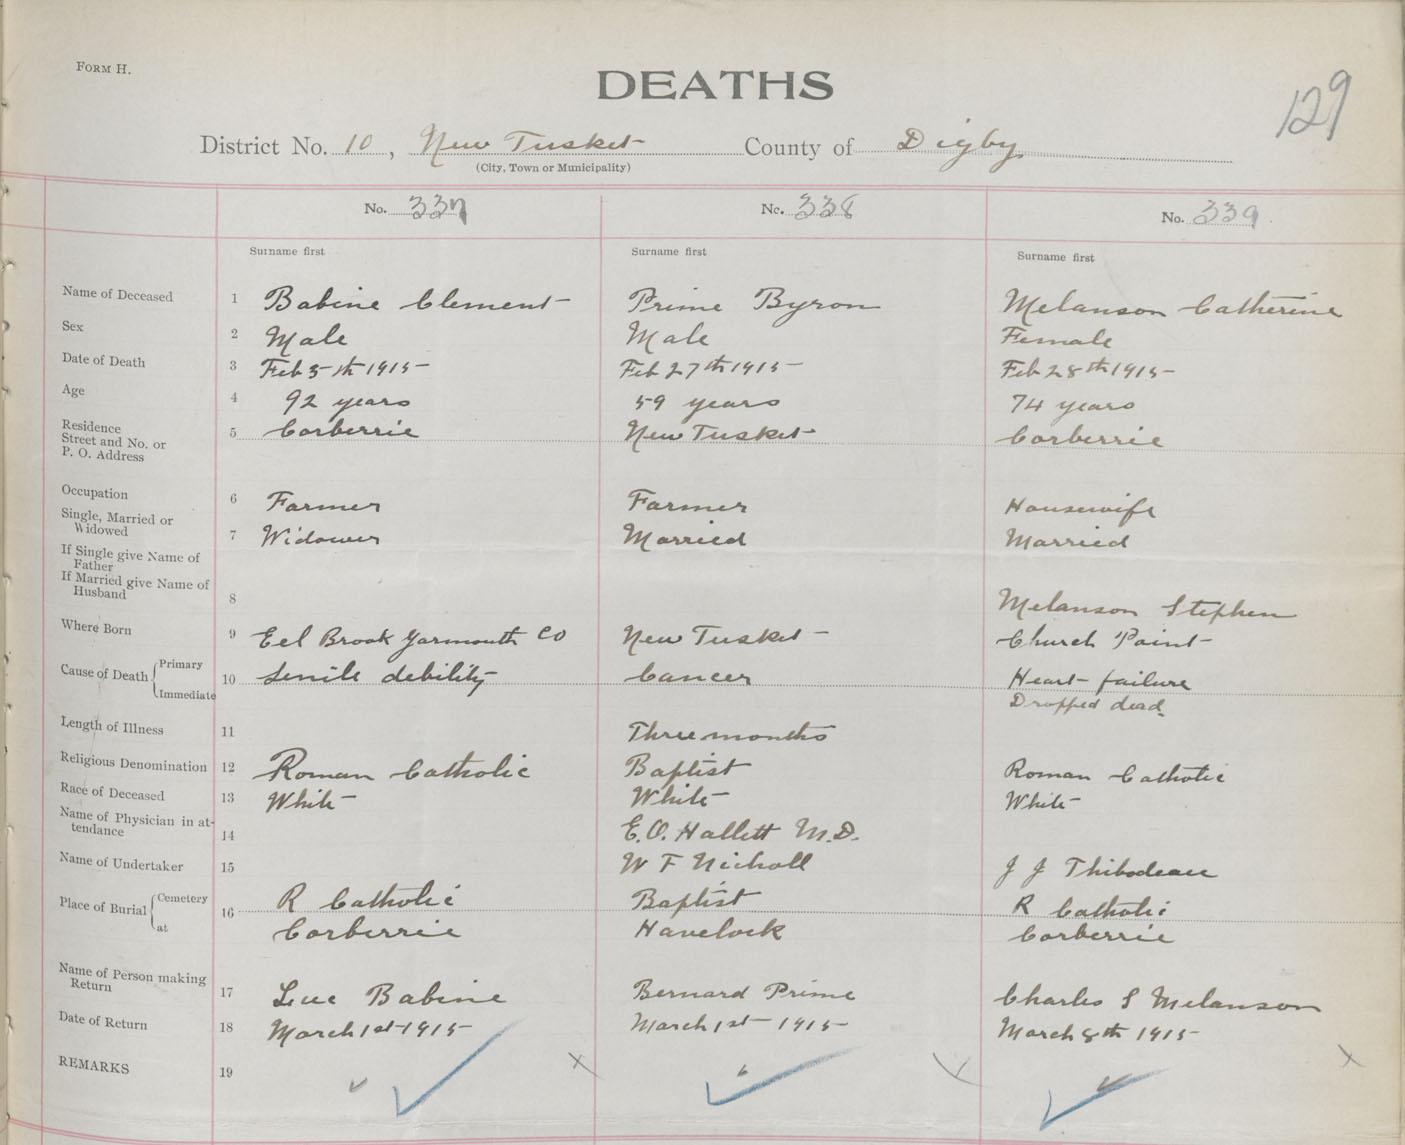 FORM H.
DEATHS
129
District No. 10, New Tusket County of Digby
(City, Town or Municipality)
No. 337 No. 338 No. 339
Surname first Surname first Surname first
Name of Deceased 1 Babine Clement Prime Byron Melanson Catherine
Sex 2 Male Male Female
Date of Death 3 Feb 5th 1915 Feb 27th 1915 Feb 28th 1915
Age 4 92 years 59 years 74 years
Residence
Street and No. or
P. O. Address 5 Corberrie New Tusket Corberrie
Occupation 6 Farmer Farmer Housewife
Single, Married or
Widowed 7 Widower Married Married
If Single give Name of
Father
If Married give Name of
Husband 8 Melanson Stephen
Where Born 9 Eel Brook Yarmouth Co New Tusket Church Point
Cause of Death Primary 10 Senile debility Cancer Heart failure
Immediate Dropped dead.
Length of Illness 11 Three months
Religious Denomination 12 Roman Catholic Baptist Roman Catholic
Race of Deceased 13 White White White
Name of Physician in at-
tendance 14 E.O. Hallett M.D.
Name of Undertaker 15 W F Nicholl J J Thibodeau
Place of Burial Cemetery 16 R Catholic Baptist R Catholic
at Corberrie Havelock Corberrie
Name of Person making
Return 17 Luc Babine Bernard Prime Charles S Melanson
Date of Return 18 March 1st 1915 March 1st 1915 March 8th 1915
REMARKS 19